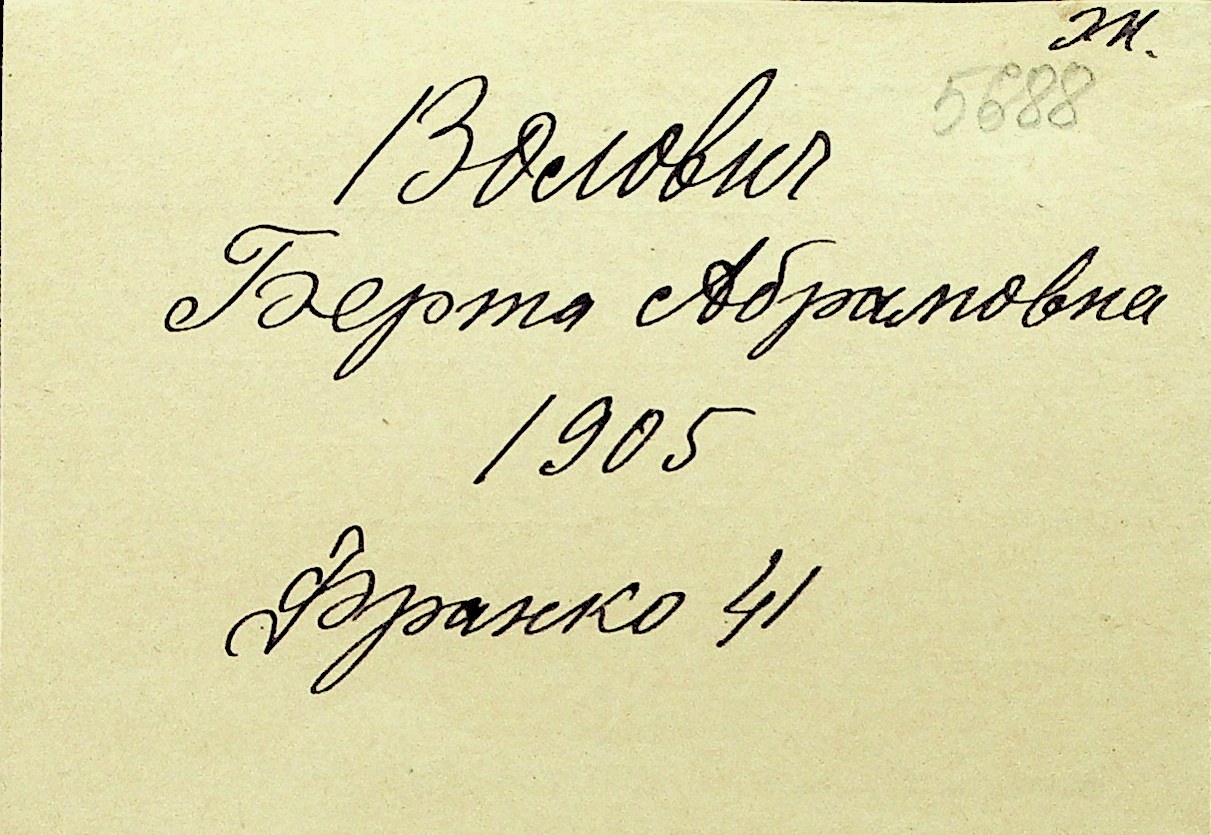 ж.
5688
Волович
Берта Абрамовна
1905
Франко 41